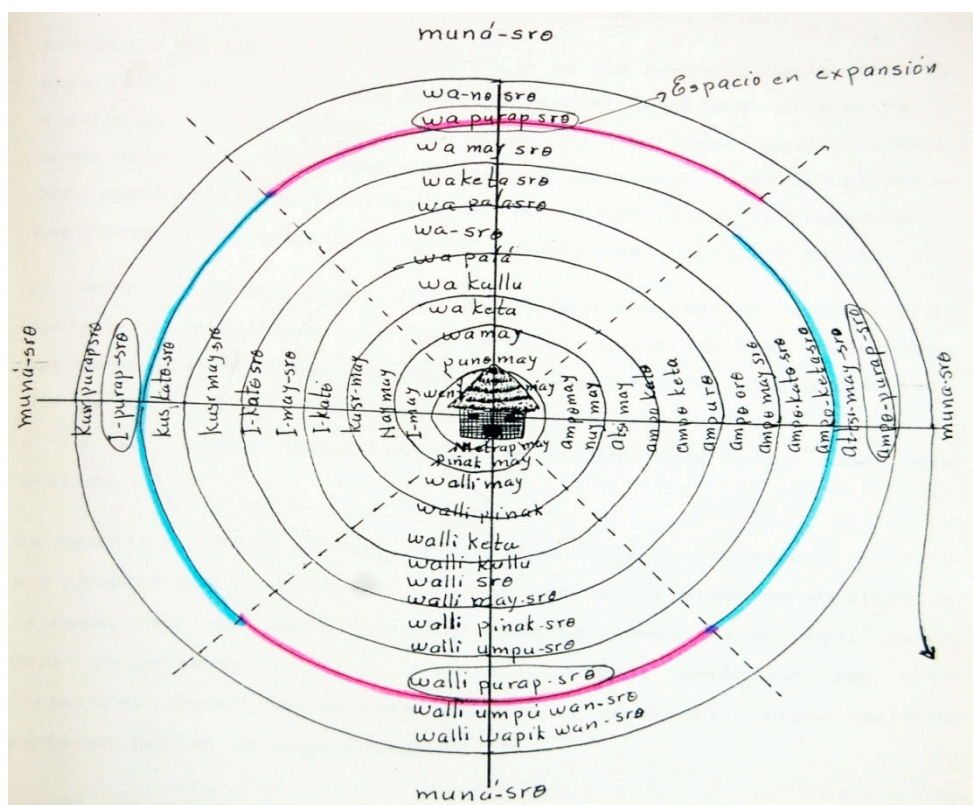 muná-srɵ
Espacio en expansión
wa-nɵ srɵ
wa purap srɵ
wa may srɵ
waketa srɵ
wa palasrɵ
wa-srɵ
wa palá
wa kullu
wa keta
wamay
punɵ may
may
muná-srɵ
I-purap-srɵ
kus, katɵ-srɵ
kusr may-srɵ
I-katɵ srɵ
I-may-srɵ
I-katɵ
kusr-may
Nay may
I-may
ampɵmay
nuy may
atsi may
ampɵ katɵ
ampɵ keta
ampurɵ
ampɵ orɵ
ampɵ may srɵ
ampɵ-katɵ-srɵ
ampɵ-ketasrɵ
ampɵ-purap-srɵ
muna-srɵ
Piñak may
walli may
walli pinak
walli keta
walli kullu
walli srɵ
walli may-srɵ
walli piñak-srɵ
walli umpu-srɵ
walli purap-srɵ
walli umpú wan-srɵ
walli wapik wan-srɵ
muná-srɵ